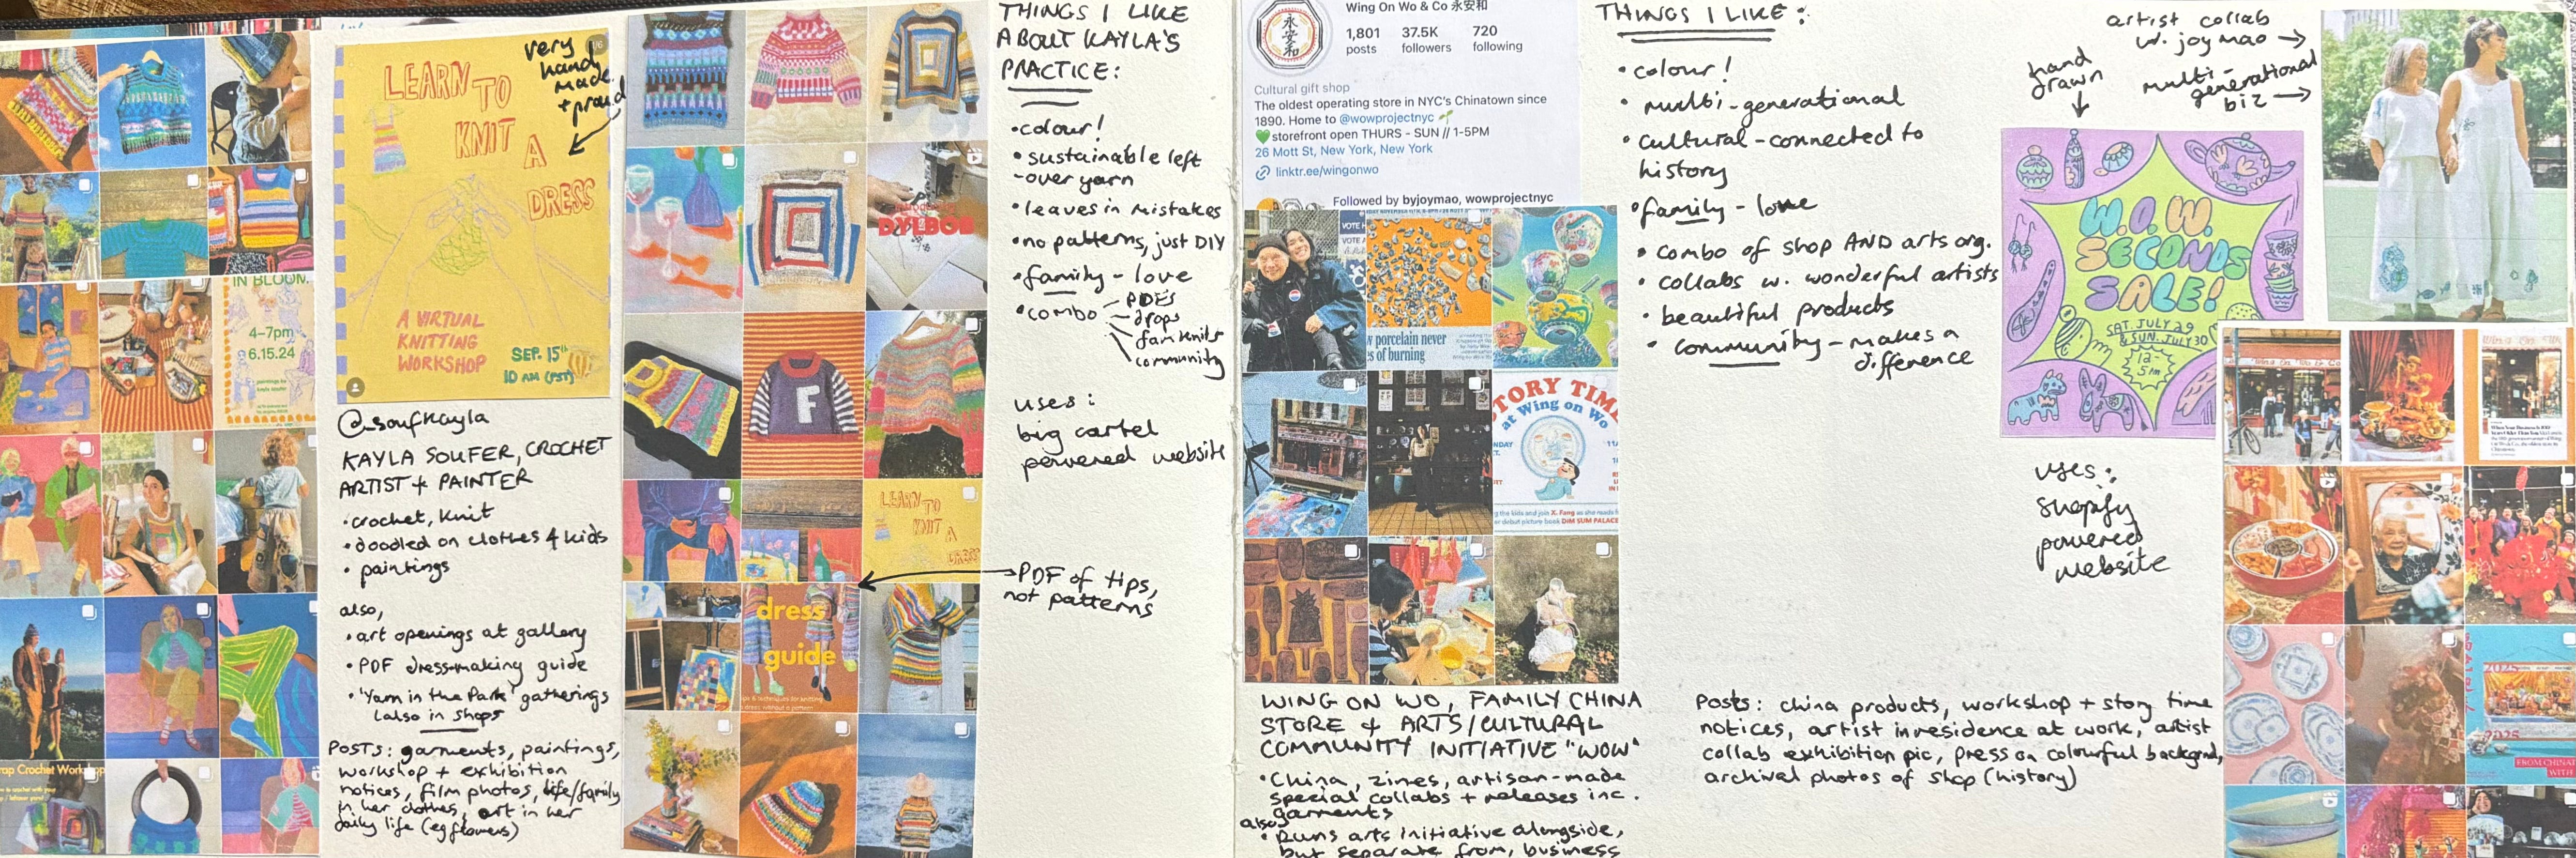 very
hand
made
+ proud
LEARN TO
KNIT
A
DRESS
A VIRTUAL
KNITTING
WORKSHOP
SEP. 15th
10 AM (PST)
IN BLOOM.
4-7pm
6.15.24
@soufkayla
KAYLA SOUFER, CROCHET
ARTIST + PAINTER
• crochet, knit
• doodled on clothes 4 kids
• paintings
also,
• art openings at gallery
• PDF dressmaking guide
• 'Yarn in the Park' gatherings
(also in shops
POSTS: garments, paintings,
workshop + exhibition
notices, film photos, life/family
in her clothes, art in her
daily life (eg flowers)
rap Crochet Workshop
F
LEARN TO
KNIT A
DRESS
dress
guide
THINGS I LIKE
ABOUT KAYLA'S
PRACTICE:
• colour!
• sustainable left
-over yarn
• leaves in mistakes
• no patterns, just DIY
• family - love
• combo - PDFS
- drops
- fam knits
community
uses:
big cartel
powered website
PDF of tips,
not patterns
永安和
Wing On Wo & Co 永安和
1,801 37.5K 720
posts followers following
Cultural gift shop
The oldest operating store in NYC's Chinatown since
1890. Home to @wowprojectnyc 🌱
💚storefront open THURS - SUN // 1-5PM
26 Mott St, New York, New York
linktr.ee/wingonwo
Followed by byjoymao, wowprojectnyc
VOTE
w porcelain never
s of burning
STORY TIME
at Wing on Wo
g the kids and join X. Fang as she reads
er debut picture book DIM SUM PALACE
WING ON WO, FAMILY CHINA
STORE & ARTS/CULTURAL
COMMUNITY INITIATIVE "WOW"
• China, zines, artisan-made
special collabs + releases inc.
garments
also
• Runs arts initiative alongside,
but separate from, business
THINGS I LIKE:
• colour!
• multi-generational
• cultural - connected to
history
• family - love
• combo of shop AND arts org.
• collabs w. wonderful artists
• beautiful products
• community - makes a
difference
hand
drawn
artist collab
w. joy mao →
multi-
generational
biz →
W.O.W.
SECONDS
SALE!
SAT. JULY 29
& SUN. JULY 30
12-
5PM
uses:
shopify
powered
website
Posts: china products, workshop + story time
notices, artist in residence at work, artist
collab exhibition pic, press on colourful backgrnd,
archival photos of shop (history)
2025
FROM CHINA
WITH